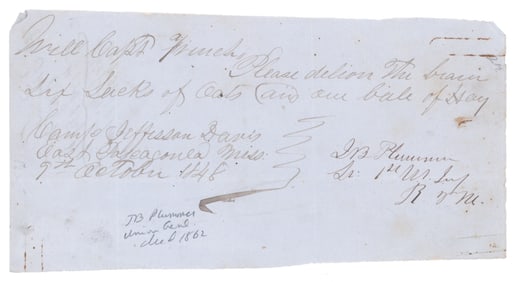 Will Capt French
Please deliver The bearer
Six Sacks of Oats and one bale of Hay
Camp Jefferson Davis
East Pascagoula Miss.
9th October 1848
J.B. Plummer
Lt. 1st U.S. Inf
R. Q. M.
JB Plummer
Union Genl
died 1862